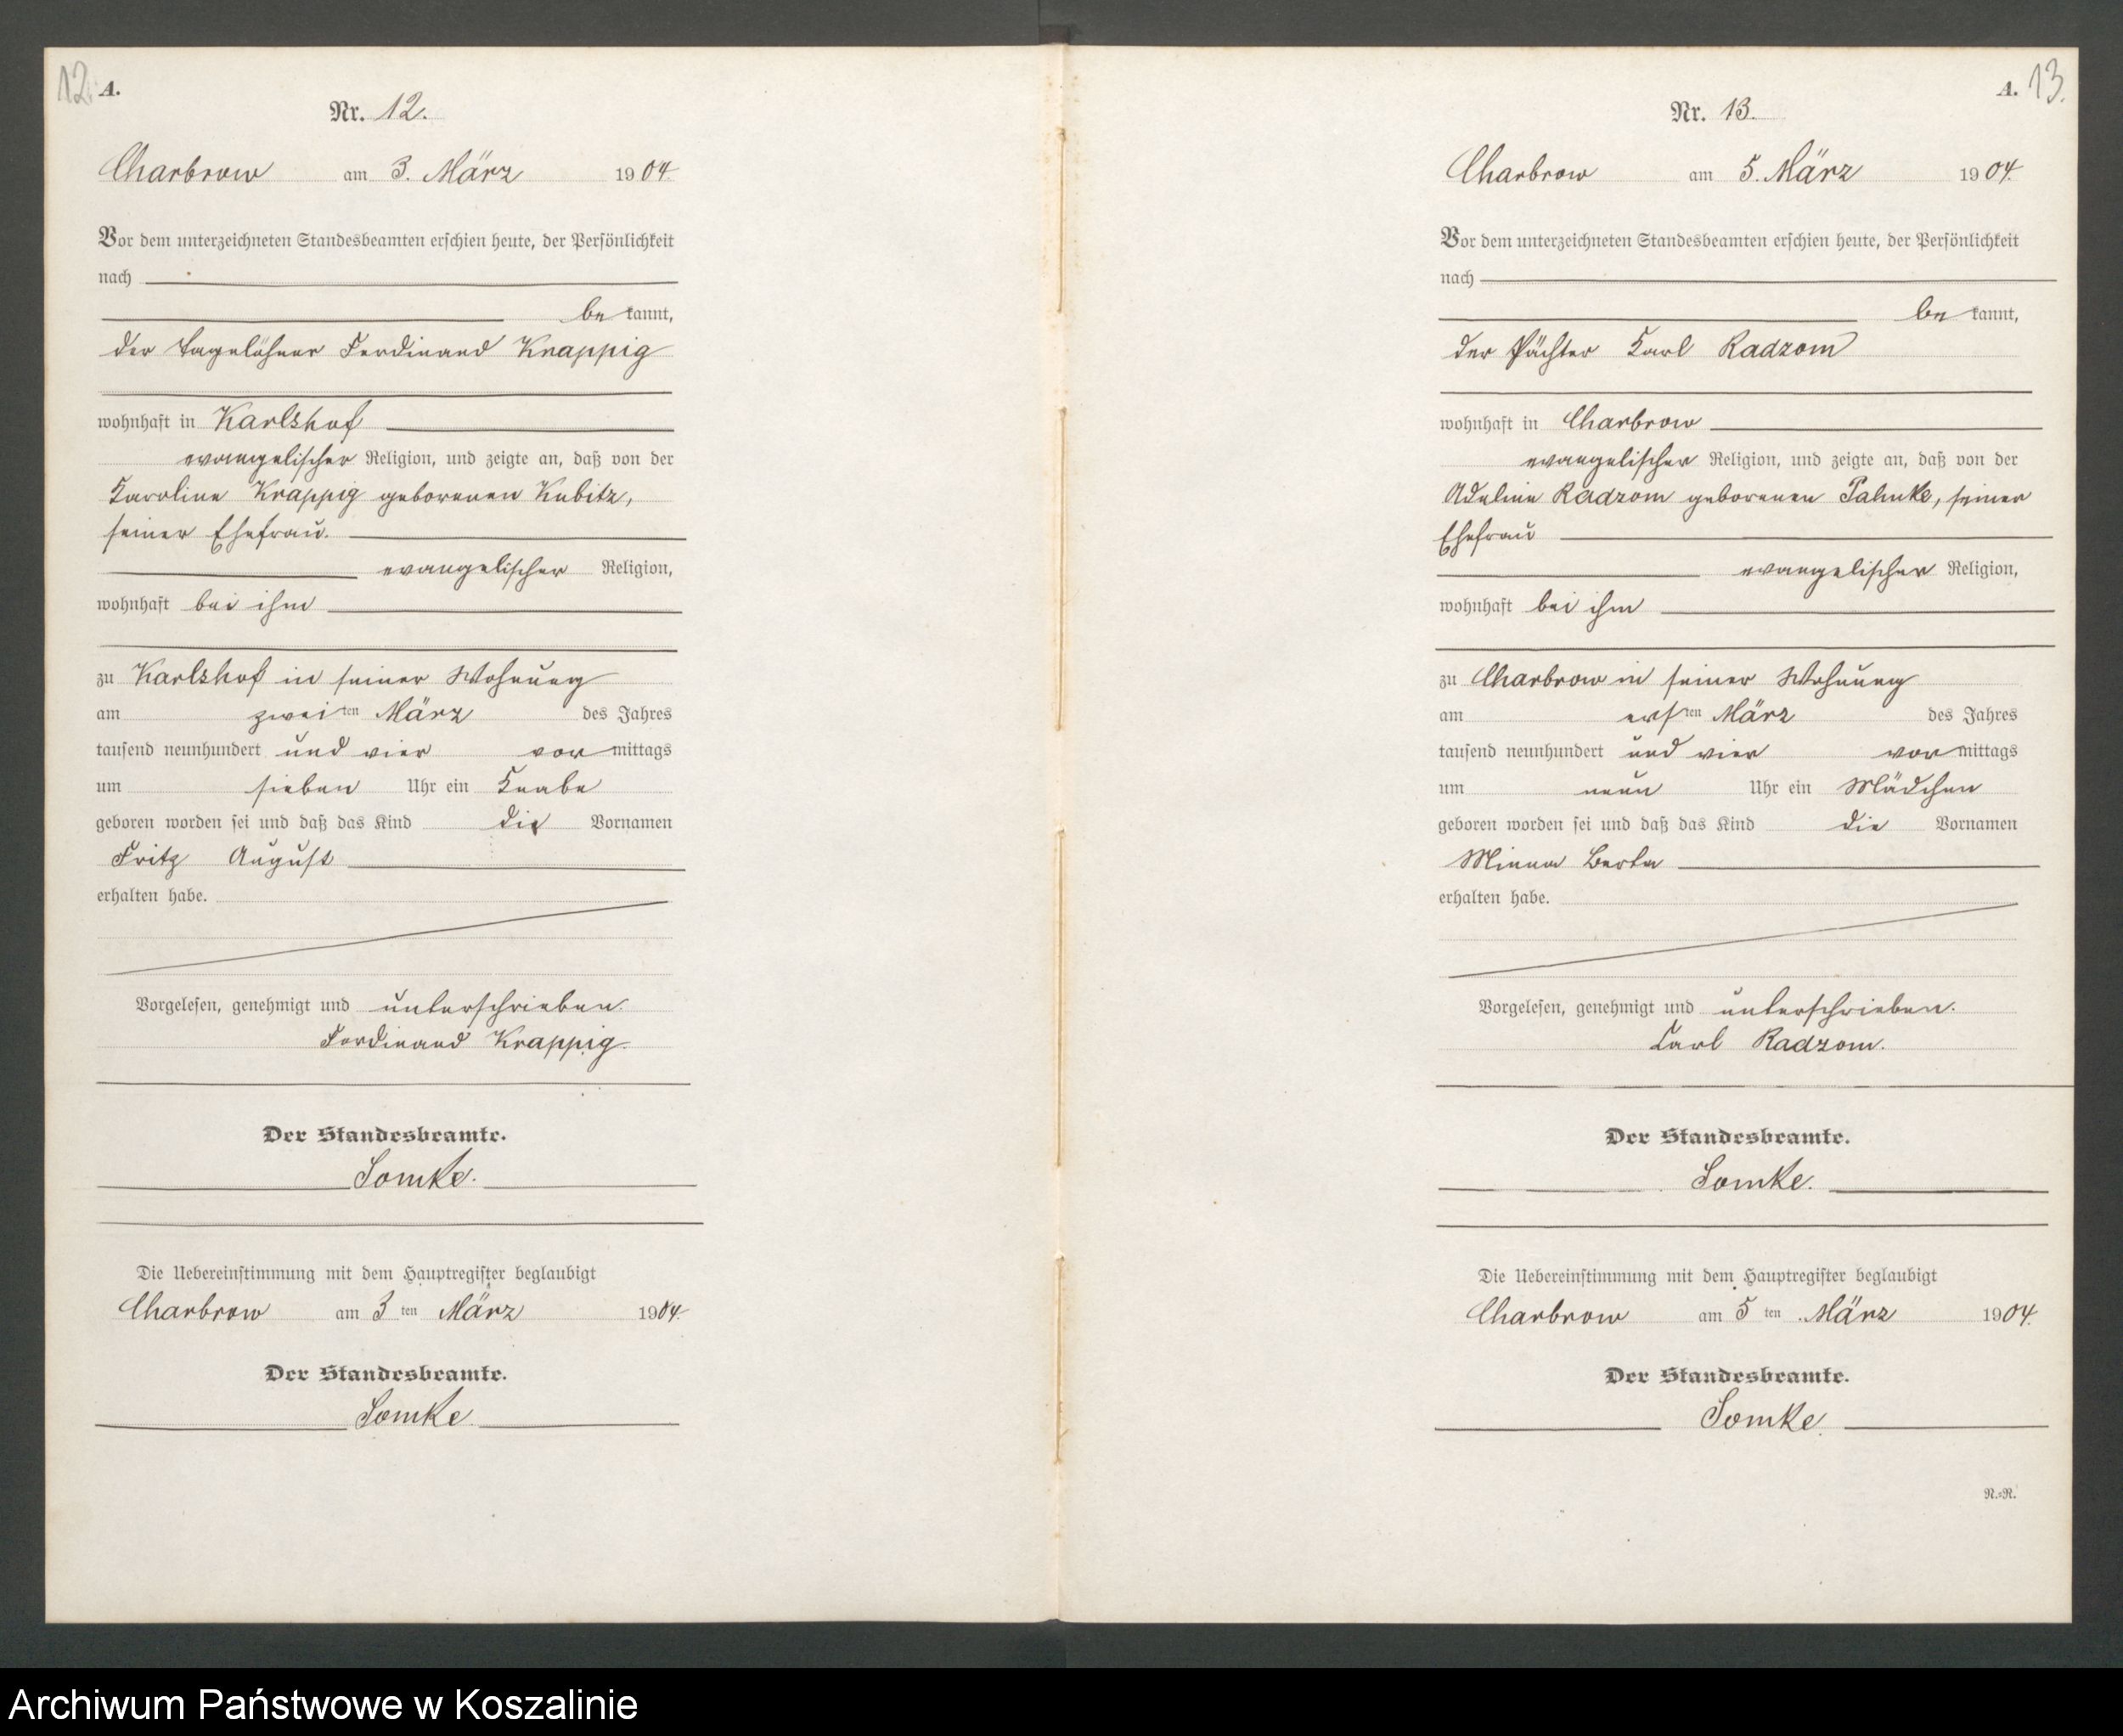 12. A.
Nr. 12.
Charbrow am 3. März 1904.
Vor dem unterzeichneten Standesbeamten erschien heute, der Persönlichkeit
nach
be kannt,
der Tagelöhner Ferdinand Krappig
wohnhaft in Karlshof
evangelischer Religion, und zeigte an, daß von der
Karoline Krappig geborenen Kubitz,
seiner Ehefrau.
evangelischer Religion,
wohnhaft bei ihm
zu Karlshof in seiner Wohnung
am zwei ten März des Jahres
tausend neunhundert und vier vor mittags
um sieben Uhr ein Knabe
geboren worden sei und daß das Kind die Vornamen
Fritz August
erhalten habe.
Vorgelesen, genehmigt und unterschrieben.
Ferdinand Krappig.
Der Standesbeamte.
Somke.
Die Uebereinstimmung mit dem Hauptregister beglaubigt
Charbrow am 3 ten März 1904.
Der Standesbeamte.
Somke
A. 13.
Nr. 13.
Charbrow am 5. März 1904.
Vor dem unterzeichneten Standesbeamten erschien heute, der Persönlichkeit
nach
be kannt,
der Pächter Karl Radzom
wohnhaft in Charbrow
evangelischer Religion, und zeigte an, daß von der
Adeline Radzom geborenen Pahnke, seiner
Ehefrau
evangelischer Religion,
wohnhaft bei ihm
zu Charbrow in seiner Wohnung
am ers ten März des Jahres
tausend neunhundert und vier vor mittags
um neun Uhr ein Mädchen
geboren worden sei und daß das Kind die Vornamen
Minna Berta
erhalten habe.
Vorgelesen, genehmigt und unterschrieben.
Carl Radzom.
Der Standesbeamte.
Somke.
Die Uebereinstimmung mit dem Hauptregister beglaubigt
Charbrow am 5 ten März 1904.
Der Standesbeamte.
Somke.
N.=R.
Archiwum Państwowe w Koszalinie